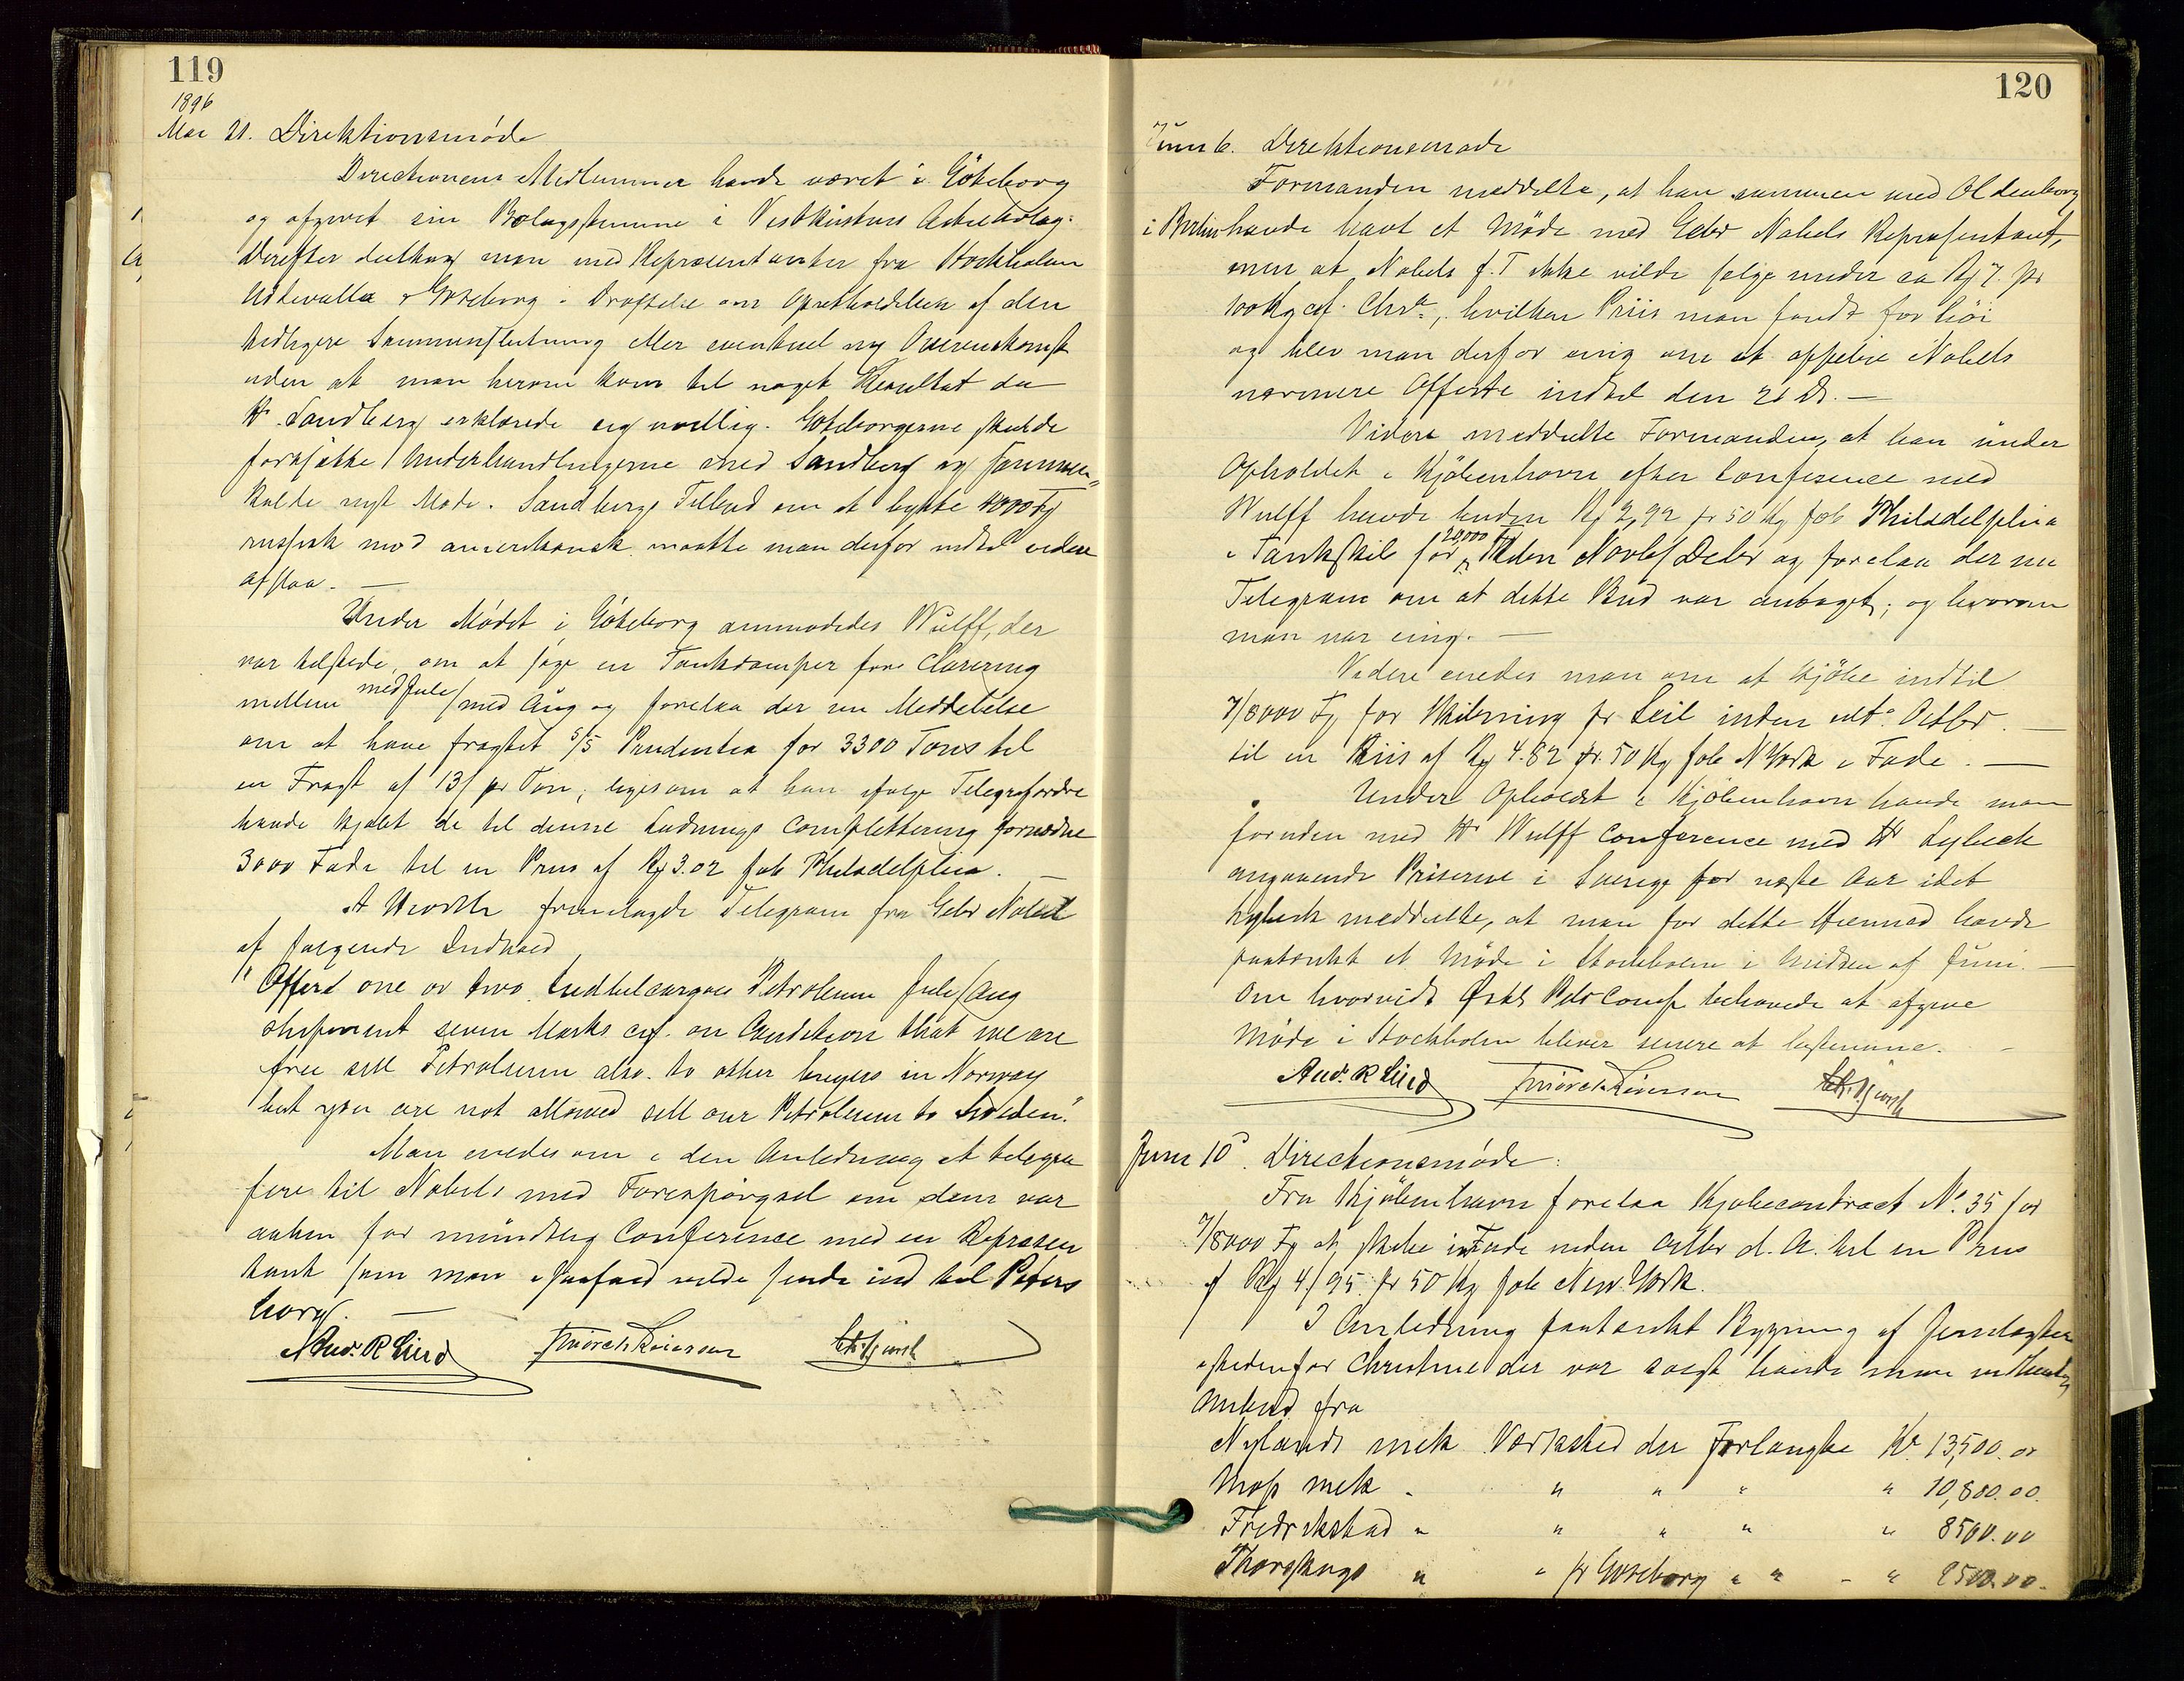 119
1896
Mai 21. Direktionsmöde
Directionens Medlemmer havde været i Göteborg
og afgivet sin Bolagsstemme i Vestkustens Actiebolag.
Derefter deeltog man med Repræsentanter fra Stockholm
Uddevalla & Göteborg i Drøftelse om Opretholdelsen af den
tidligere Sammenslutning eller eventuel ny Overenskomst
uden at man herom kom til noget Resultat da
Hr. Sandberg erklærede sig uvillig. Göteborgerne skulde
fortsætte Underhandlingerne med Sandberg og sammen-
kalde nyt Møde. Sandbergs Tilbud om at bytte 4000 Fg
russisk mod amerikansk maatte man derfor indtil videre
afslaa. —
Under Mödet i Göteborg anmodedes Wulff, der
var tilstede, om at søge en Tankdamper for Clarering
mellem med Juli/med Aug og forelaa der nu Meddelelse
om at have fragtet S/S Prudentia for 3300 Tons til
en Fragt af 13/ pr Ton, ligesom at han ifølge Telegrafordre
havde kjøbt de til denne Ladnings Complettering fornødne
3000 Fade til en Priis af Rj 3.02 fob Philadelphia. —
fremlagde Telegram fra Gebr Nobel
af følgende Indhold
"Offer one or two petroleum July/Aug
shipment seven Marks cif. on Condition that we are
free sell Petroleum also to other buyers in Norway
but you are not allowed sell our Petroleum to Sweden."
Man enedes om i den Anledning at telegra
fere til Nobels med Forespörgsel om dem var
anken for mündtlig Conference med en Repræsen
tant som man isaafald vilde sende ind til Peters
borg. —
And. R Lind
120
Juni 6. Direktionsmøde
Formanden meddelte, at han sammen med Oldenborg
i Berlin havde havt et Möde med Gebr Nobels Repræsentant,
men at Nobels f. T ikke vilde sælge under ca Rj 7. pr
100 Kg cif. Chra., hvilken Priis man fandt for höi
og blev man derfor enig om at oppebie Nobels
nærmere Offerte indtil den 20 ds. —
Videre meddelte Formanden, at han ünder
Opholdet i Kjöbenhavn efter Conference med
Wulff havde buden Rj 2,92 pr 50 Kg fob Philadelphia
i Tankskib for 20,000 Fg inden Novbr/Debr og forelaa der nu
Telegram om at dette Bud var antaget; og hvorom
man var enig. —
Videre enedes man om at kjöbe indtil
7/8000 Fg for Skibning pr Seil inden ult° Octbr. —
til en Priis af Rj 4.82 pr. 50 Kg fob N York i Fade. —
Under Opholdet i Kjöbenhavn havde man
foruden med Hr Wulff Conference med Hr Lybeck
angaaende Priserne i Sverige for næste Aar idet
Lybeck meddelte, at man for dette Øiemed havde
paatænkt et Möde i Stockholm i Midden af Juni. —
Om hvorvidt Østl. Petr Comp behøvede at afgive
Möde i Stockholm bliver senere at bestemme. —
And. R Lind
Juni 10. Directionsmöde:
Fra Kjöbenhavn forelaa Kjøbecontract No. 35 for
7/8000 Fg at skibe i Fade inden Octbr d. A. til en Priis
af Rj 4/95 pr 50 Kg fob New York.
I Anledning paatænkt Bygning af Jernlægter
istedenfor Christine der var solgt havde man indhentet
Anbud fra
Nylands mek Værksted der forlangte Kr. 13,500.00
Moss mek „ „ „ „ „ 10,800.00.
Fredrikstad „ „ „ „ „ 8500.00
Thorskogs „ „ pr Göteborg „ „ „ „ 8500.00.